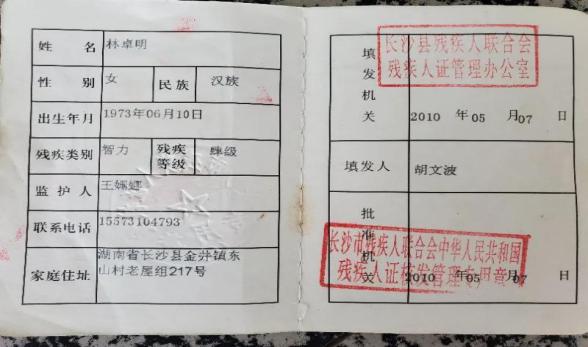 姓 名 林卓明
性 别 女 民族 汉族
出生年月 1973年06月10日
残疾类别 智力 残疾等级 肆级
监护人
联系电话 15573104793
家庭住址 湖南省长沙县金井镇东
山村老屋组217号
填发机关
长沙县残疾人联合会
残疾人证管理办公室
2010 年05 月07 日
填发人 胡文波
批准机关
长沙市残疾人联合会中华人民共和国
残疾人证核发管理专用章
2010 年05 月07 日